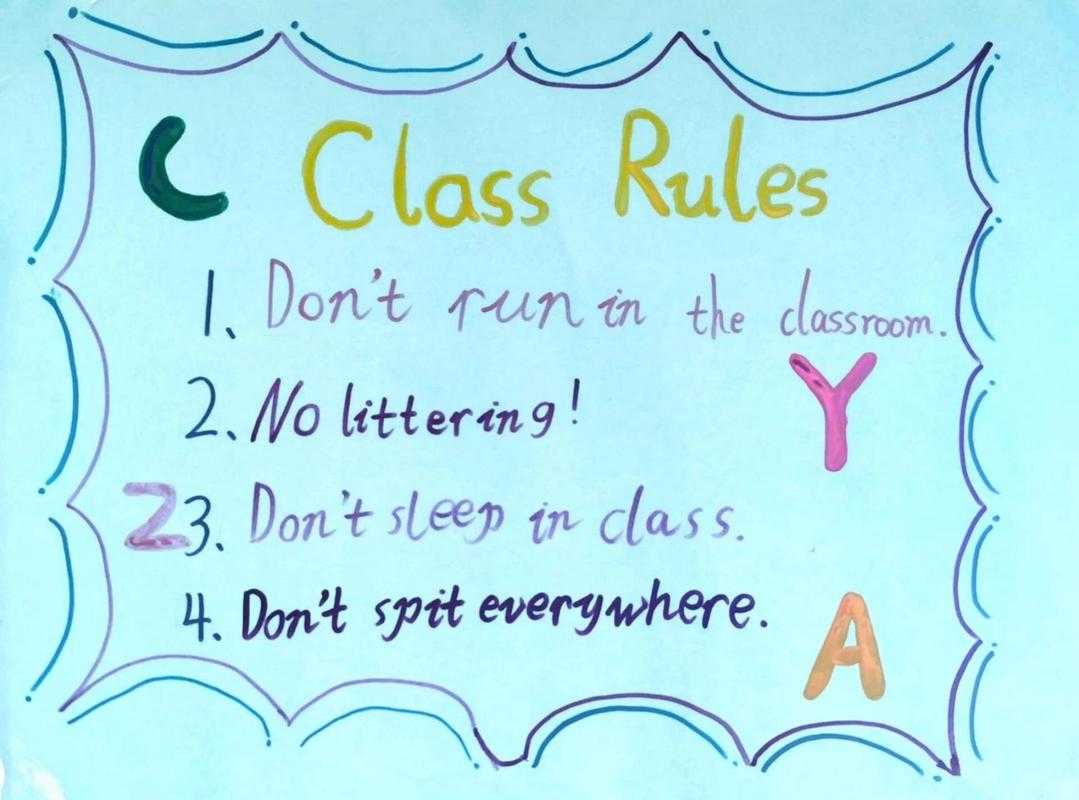 C Class Rules
1、Don't run in the classroom.
Y
2.No littering!
Z
3、Don't sleep in class.
4. Don't spit everywhere.
A